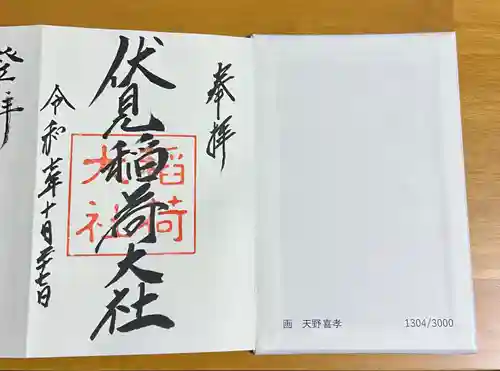 奉拝
伏見稲荷大社
稲荷
大社
十月二十七日
画 天野喜孝
1304/3000